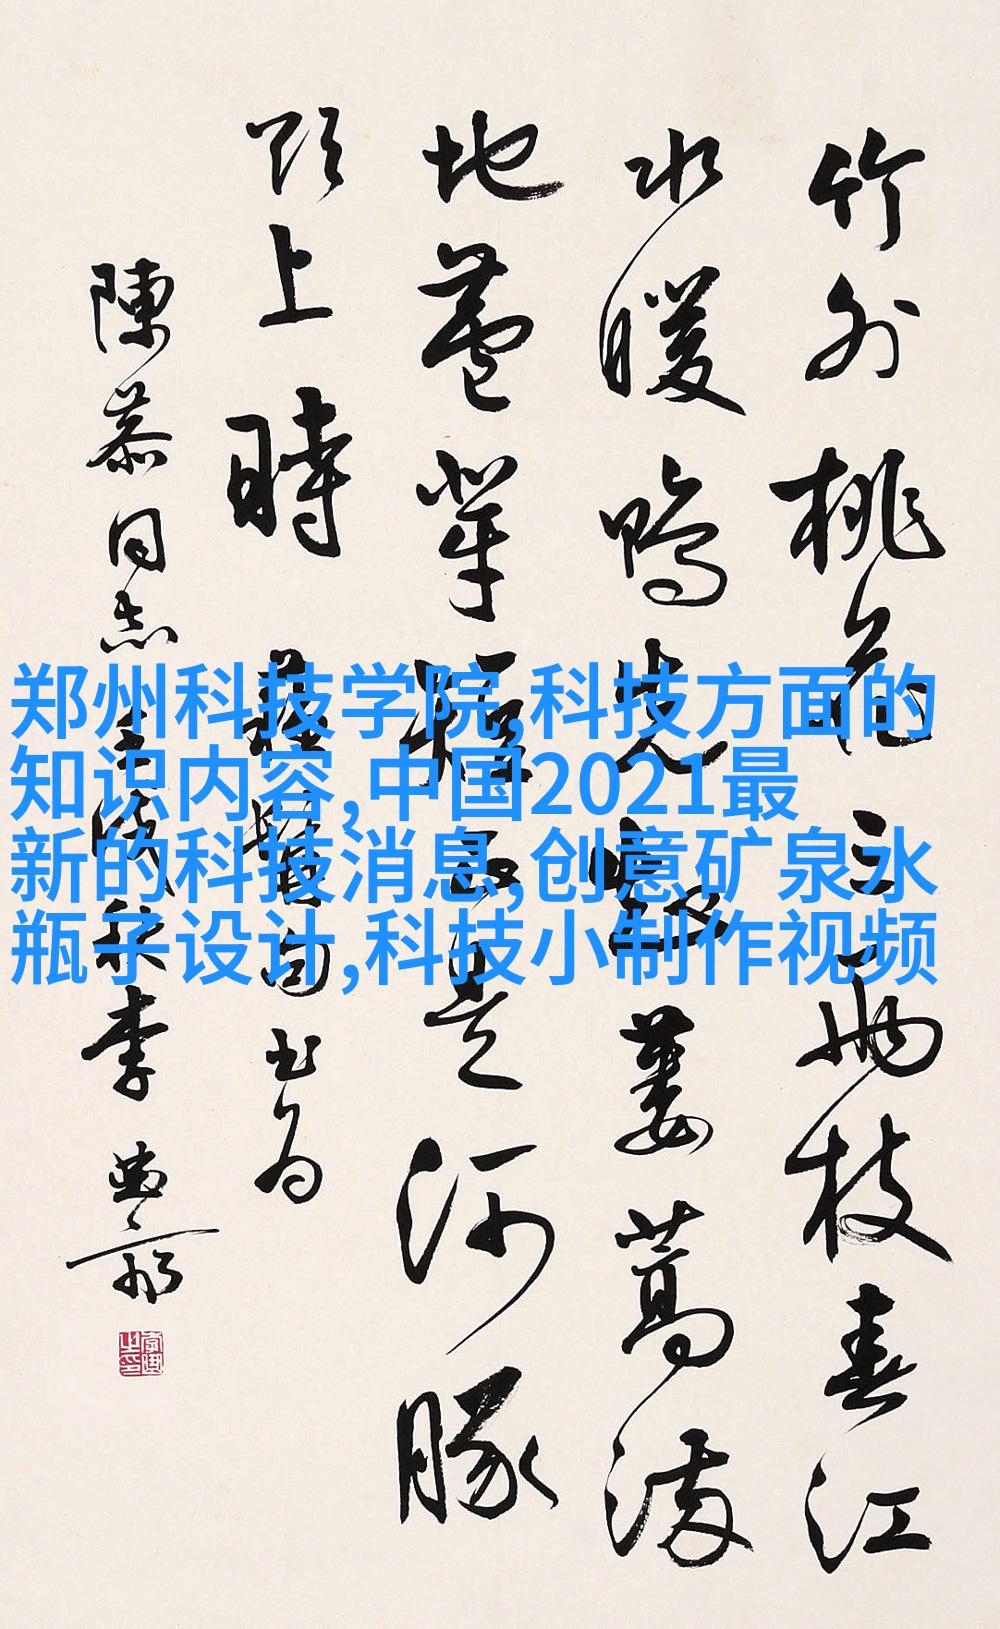 竹外桃花三兩枝春江
水暖鴨先知蔞蒿滿
地蘆芽短正是河豚
欲上時 蘇 句書為
陳 同志 李
郑州科技学院,科技方面的
知识内容,中国2021最
新的科技消息,创意矿泉水
瓶子设计,科技小制作视频